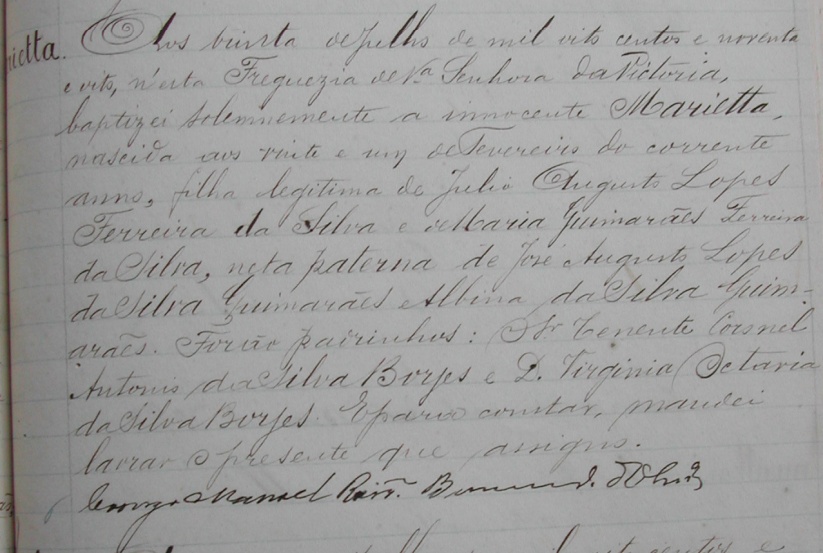 rietta.
Aos trinta de Julho de mil oito centos e noventa
e oito, n'esta Freguezia de Nª Senhora da Victoria,
baptizei solemnemente a innocente Marietta,
nascida aos vinte e um de Fevereiro do corrente
anno, filha legitima de Julio Augusto Lopes
Ferreira da Silva e de Maria Guimarães Ferreira
da Silva, neta paterna de José Augusto Lopes
da Silva Guimarães e Albina da Silva Guim-
arães. Forão padrinhos: O Sr. Tenente Coronel
Antonio da Silva Borges e D. Virginia Octavia
da Silva Borges. E para constar, mandei
lavrar o presente que assigno.
Conego Manoel
centos e